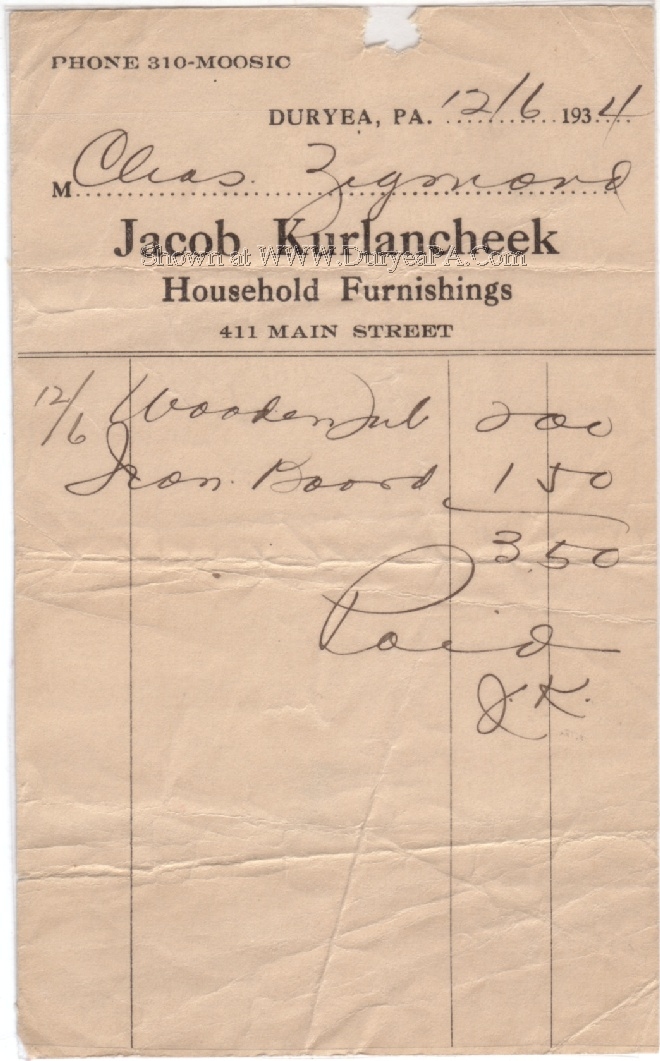 PHONE 310-MOOSIC
DURYEA, PA. 12/6 1934
M Chas. Zigmond
Jacob Kurlancheek
Shown at WWW.DuryeaPA.Com
Household Furnishings
411 MAIN STREET
12/6 Wooden Tub 2 00
Iron. Board 1 50
3.50
Paid
J.K.